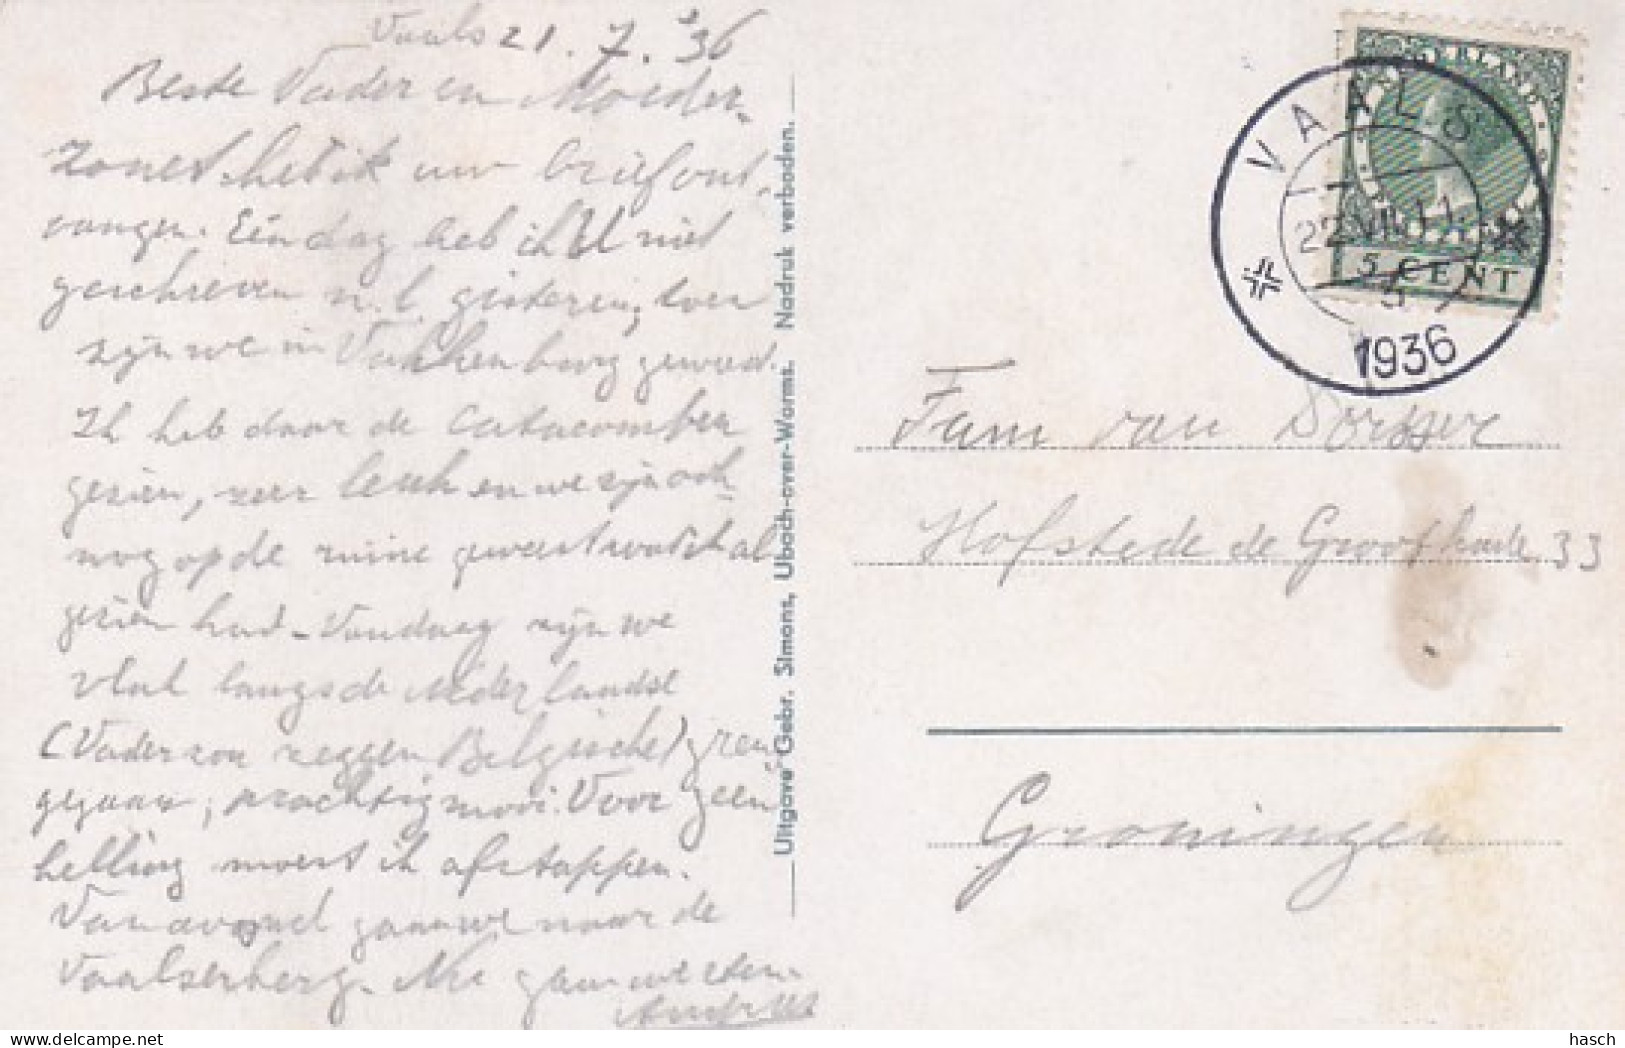 Vaals 21.7.'36
Beste Vader en Moeder
Zonet heb ik uw brief ont-
vangen. Eén dag heb ik U niet
geschreven n.l. gisteren, toen
zijn we in Valkenburg geweest.
Ik heb daar de Catacomben
gezien, zeer leuk en we zijn ook
nog op de ruine geweest wat ik al
gezien had. Vandaag zijn we
vlak langs de Nederlandse
(Vader zou zeggen Belgische) grens
gegaan, prachtig mooi. Voor geen
helling moest ik afstappen.
Vanavond gaan we naar de
Vaalserberg. Nu gaan we eten.
Uitgave Gebr. Simons, Ubach-over-Worms. Nadruk verboden.
NEDERLAND
5 CENT
VAALS
22.VII.11
1936
Fam van Dorsser
Hofstede de Grootkade 33
Groningen
hasch